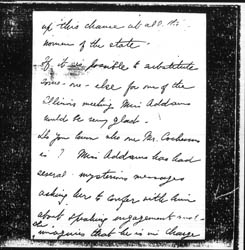 up this chance at all. the
women of the state.
If it is possible to substitute
some-one-else for one of the
Illinois meeting Miss Addams
would be very glad.
Do you know who Mr. Cochran
is? Miss Addams has had
several mysterious messages
asking her to confer with him
about speaking engagements and
she imagines that he is in charge